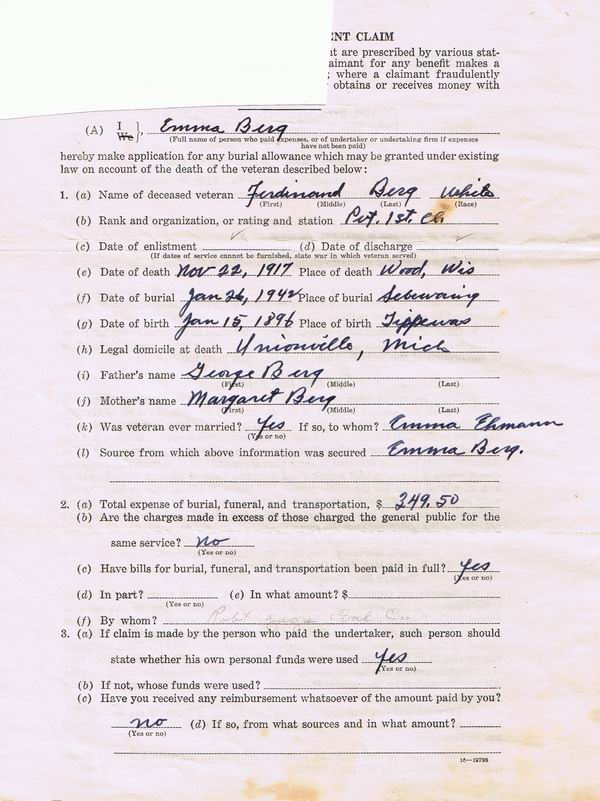 ENT CLAIM
t are prescribed by various stat-
aimant for any benefit makes a
; where a claimant fraudulently
obtains or receives money with
(A) I We }, Emma Berg
(Full name of person who paid expenses, or of undertaker or undertaking firm if expenses
have not been paid)
hereby make application for any burial allowance which may be granted under existing
law on account of the death of the veteran described below:
1. (a) Name of deceased veteran Ferdinand Berg White
(First) (Middle) (Last) (Race)
(b) Rank and organization, or rating and station Pvt. 1st. Cl.
(c) Date of enlistment (d) Date of discharge
(If dates of service cannot be furnished, state war in which veteran served)
(e) Date of death Nov 22, 1917 Place of death Wood, Wis
(f) Date of burial Jan 26, 1942 Place of burial Sebewaing
(g) Date of birth Jan 15, 1896 Place of birth
(h) Legal domicile at death Unionville, Mich
(i) Father's name George Berg
(First) (Middle) (Last)
(j) Mother's name Margaret Berg
(First) (Middle) (Last)
(k) Was veteran ever married? Yes If so, to whom? Emma Ehmann
(Yes or no)
(l) Source from which above information was secured Emma Berg.
2. (a) Total expense of burial, funeral, and transportation, $ 349.50
(b) Are the charges made in excess of those charged the general public for the
same service? No
(Yes or no)
(c) Have bills for burial, funeral, and transportation been paid in full? Yes
(Yes or no)
(d) In part? (e) In what amount? $
(Yes or no)
(f) By whom?
3. (a) If claim is made by the person who paid the undertaker, such person should
state whether his own personal funds were used yes
(Yes or no)
(b) If not, whose funds were used?
(c) Have you received any reimbursement whatsoever of the amount paid by you?
no (d) If so, from what sources and in what amount?
(Yes or no)
16—19798